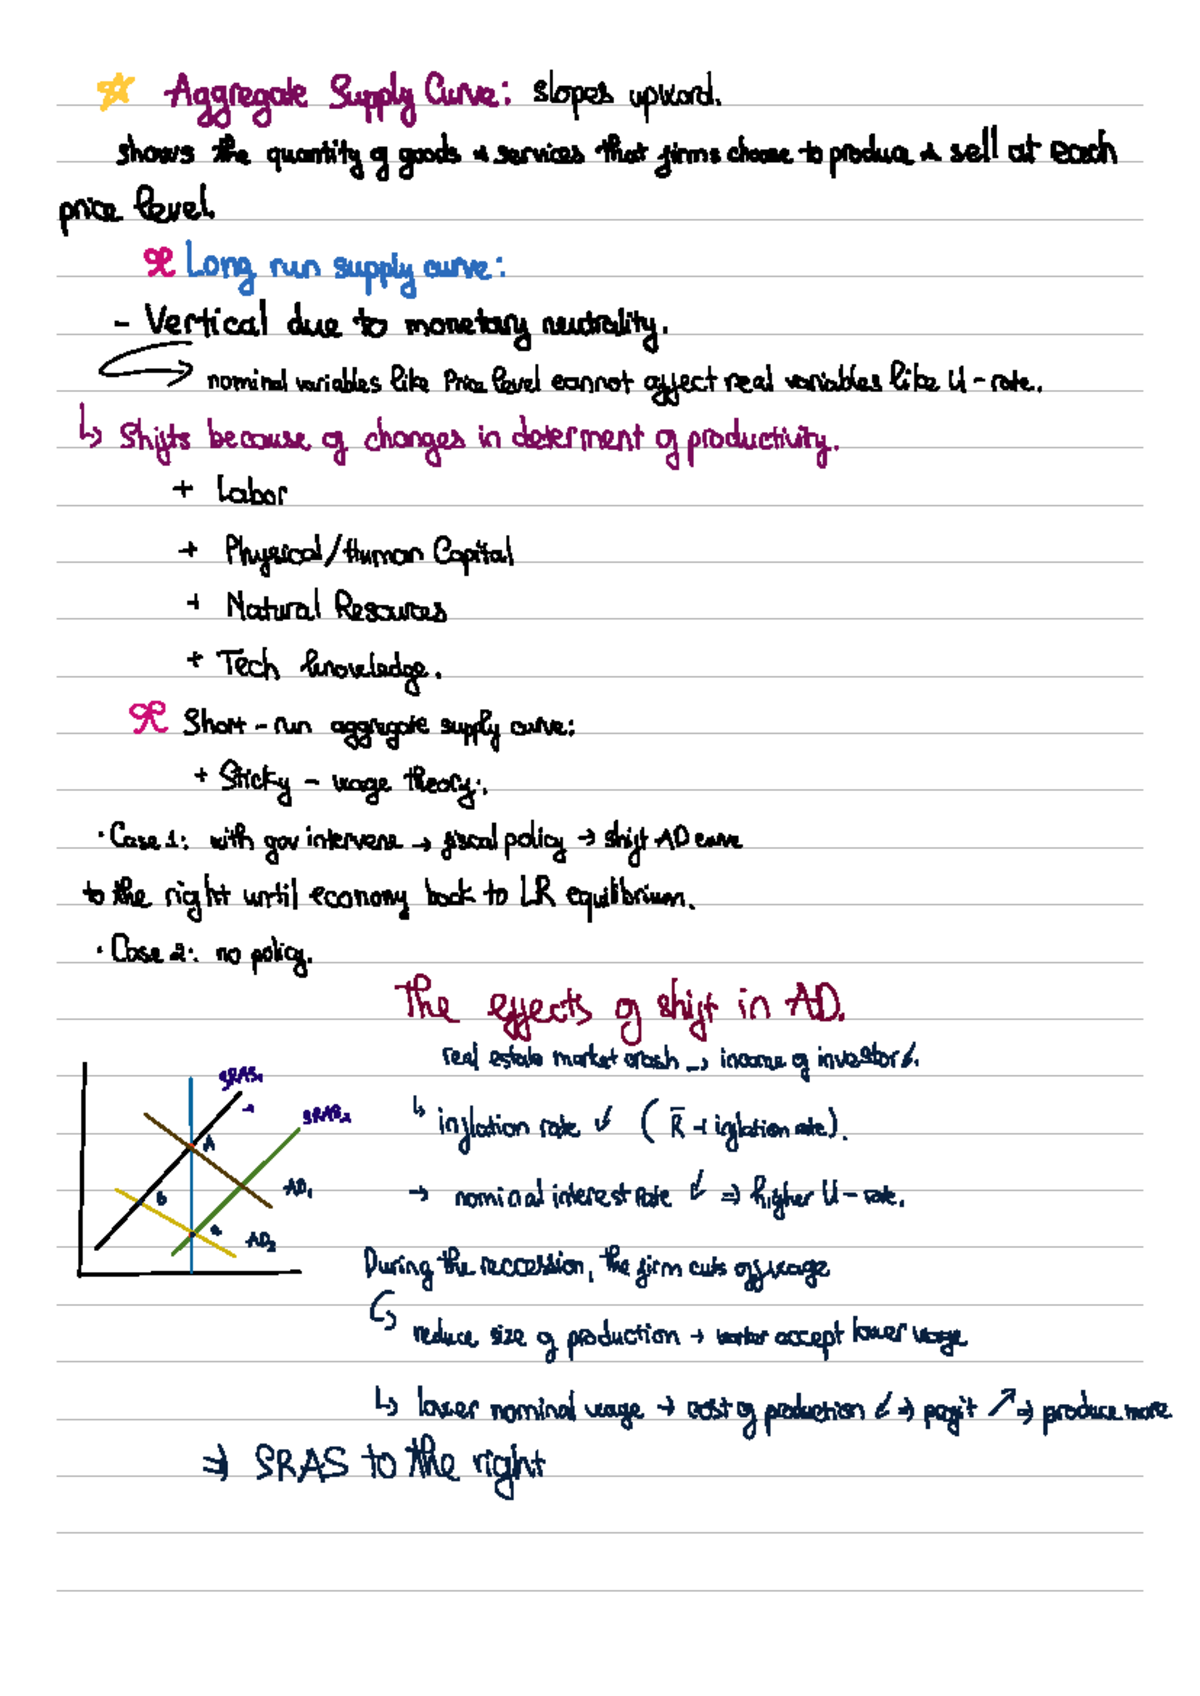 ☆ Aggregate Supply Curve: slopes upward.
shows the quantity of goods & services that firms choose to produce & sell at each
price level.
Long run supply curve:
- Vertical due to monetary neutrality.
nominal variables like Price level cannot affect real variables like U-rate.
↳ Shifts because of changes in determent of productivity.
+ Labor
+ Physical/Human Capital
+ Natural Resources
+ Tech knowledge.
Short-run aggregate supply curve:
+ Sticky-wage theory:.
• Case 1: with gov intervene → fiscal policy → shift AD curve
to the right until economy back to LR equilibrium.
• Case 2: no policy.
The effects of shift in AD.
real estate market crash → income of investor ↙.
↳ inflation rate ↙ ( R̅ + inflation rate).
→ nominal interest rate ↙ ⇒ higher U-rate.
SRAS₁
SRAS₂
A
B
AD₁
AD₂
During the reccession, the firm cuts off wage
↳ reduce size of production → worker accept lower wage
↳ lower nominal wage → cost of production ↙ ⇒ profit ↗ ⇒ produce more.
⇒ SRAS to the right